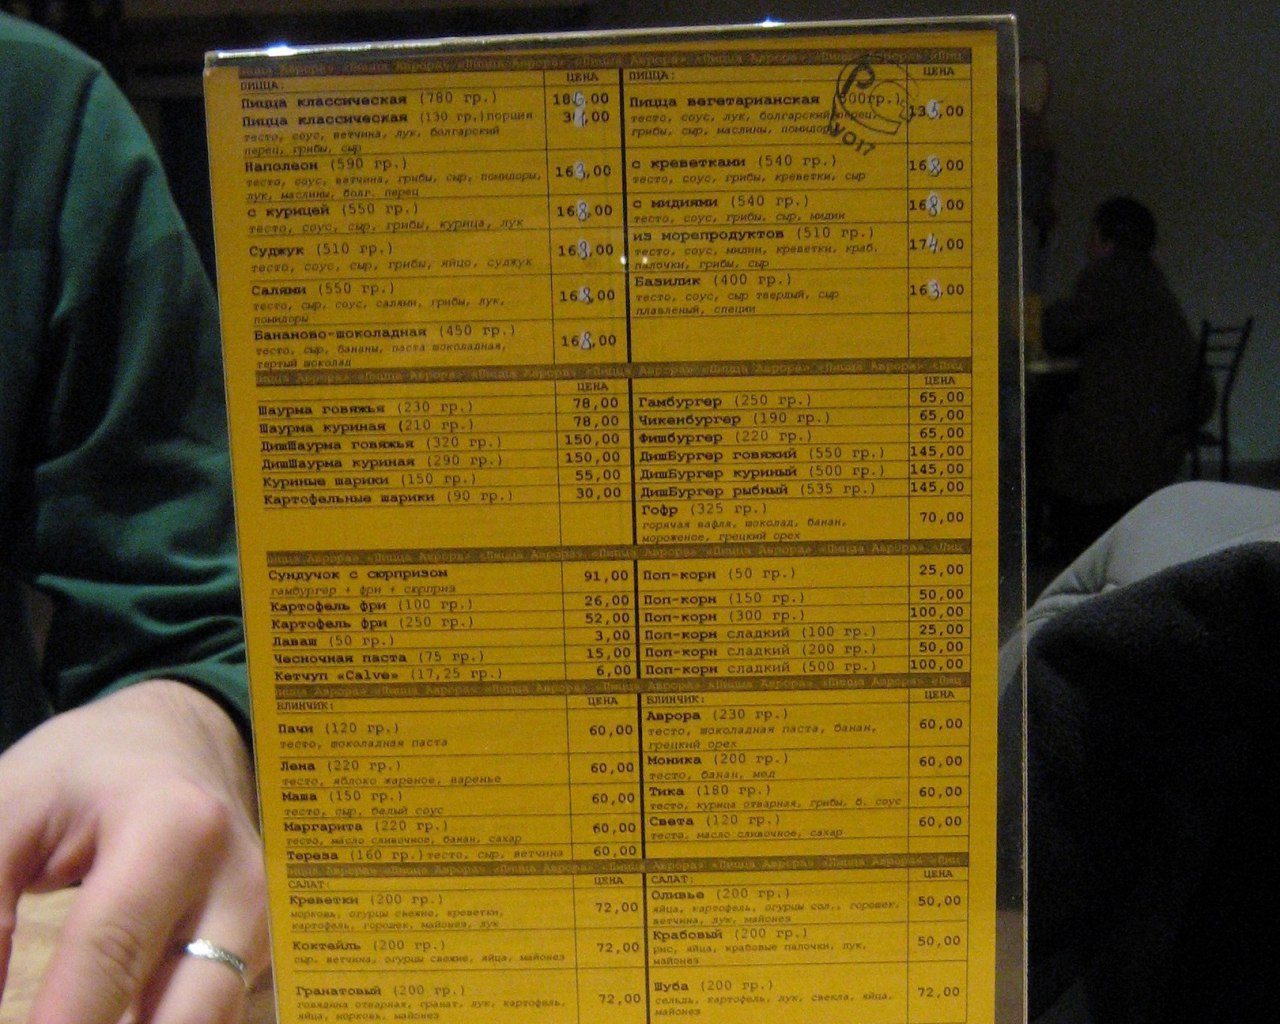 «Пицца Аврора» «Пицца Аврора» «Пицца Аврора»
ПИЦЦА: ЦЕНА
Пицца классическая (780 гр.) 186,00
Пицца классическая (130 гр.)порция 31,00
тесто, соус, ветчина, лук, болгарский
перец, грибы, сыр
Наполеон (590 гр.) 163,00
тесто, соус, ветчина, грибы, сыр, помидоры,
лук, маслины, болг. перец
с курицей (550 гр.) 168,00
тесто, соус, сыр, грибы, курица, лук
Суджук (510 гр.) 168,00
тесто, соус, сыр, грибы, яйцо, суджук
Салями (550 гр.) 168,00
тесто, сыр, соус, салями, грибы, лук,
помидоры
Бананово-шоколадная (450 гр.) 168,00
тесто, сыр, бананы, паста шоколадная,
тертый шоколад
ПИЦЦА: ЦЕНА
Пицца вегетарианская 135,00
тесто, соус, лук, болгарский перец,
грибы, сыр, маслины, помидоры
с креветками (540 гр.) 168,00
тесто, соус, грибы, креветки, сыр
с мидиями (540 гр.) 168,00
тесто, соус, грибы, сыр, мидии
из морепродуктов (510 гр.) 174,00
тесто, соус, мидии, креветки, краб.
палочки, грибы, сыр
Базилик (400 гр.) 163,00
тесто, соус, сыр твердый, сыр
плавленый, специи
«Пицца Аврора» «Пицца Аврора» «Пицца Аврора»
ЦЕНА
Шаурма говяжья (230 гр.) 78,00
Шаурма куриная (210 гр.) 78,00
ДишШаурма говяжья (320 гр.) 150,00
ДишШаурма куриная (290 гр.) 150,00
Куриные шарики (150 гр.) 55,00
Картофельные шарики (90 гр.) 30,00
ЦЕНА
Гамбургер (250 гр.) 65,00
Чикенбургер (190 гр.) 65,00
Фишбургер (220 гр.) 65,00
ДишБургер говяжий (550 гр.) 145,00
ДишБургер куриный (500 гр.) 145,00
ДишБургер рыбный (535 гр.) 145,00
Гофр (325 гр.) 70,00
горячая вафля, шоколад, банан,
мороженое, грецкий орех
«Пицца Аврора» «Пицца Аврора» «Пицца Аврора»
Сундучок с сюрпризом 91,00
гамбургер + фри + сюрприз
Картофель фри (100 гр.) 26,00
Картофель фри (250 гр.) 52,00
Лаваш (50 гр.) 3,00
Чесночная паста (75 гр.) 15,00
Кетчуп «Calve» (17,25 гр.) 6,00
Поп-корн (50 гр.) 25,00
Поп-корн (150 гр.) 50,00
Поп-корн (300 гр.) 100,00
Поп-корн сладкий (100 гр.) 25,00
Поп-корн сладкий (200 гр.) 50,00
Поп-корн сладкий (500 гр.) 100,00
«Пицца Аврора» «Пицца Аврора» «Пицца Аврора»
БЛИНЧИК: ЦЕНА
Пачи (120 гр.) 60,00
тесто, шоколадная паста
Лена (220 гр.) 60,00
тесто, яблоко жареное, варенье
Маша (150 гр.) 60,00
тесто, сыр, белый соус
Маргарита (220 гр.) 60,00
тесто, масло сливочное, банан, сахар
Тереза (160 гр.)тесто, сыр, ветчина 60,00
БЛИНЧИК: ЦЕНА
Аврора (230 гр.) 60,00
тесто, шоколадная паста, банан,
грецкий орех
Моника (200 гр.) 60,00
тесто, банан, мед
Тика (180 гр.) 60,00
тесто, курица отварная, грибы, б. соус
Света (120 гр.) 60,00
тесто, масло сливочное, сахар
«Пицца Аврора» «Пицца Аврора» «Пицца Аврора»
САЛАТ: ЦЕНА
Креветки (200 гр.) 72,00
морковь, огурцы свежие, креветки,
картофель, горошек, майонез, лук
Коктейль (200 гр.) 72,00
сыр, ветчина, огурцы свежие, яйца, майонез
Гранатовый (200 гр.) 72,00
говядина отварная, гранат, лук, картофель,
яйца, морковь, майонез
САЛАТ: ЦЕНА
Оливье (200 гр.) 50,00
яйца, картофель, огурцы сол., горошек,
ветчина, лук, майонез
Крабовый (200 гр.) 50,00
рис, яйца, крабовые палочки, лук,
майонез
Шуба (200 гр.) 72,00
сельдь, картофель, лук, свекла, яйца,
майонез